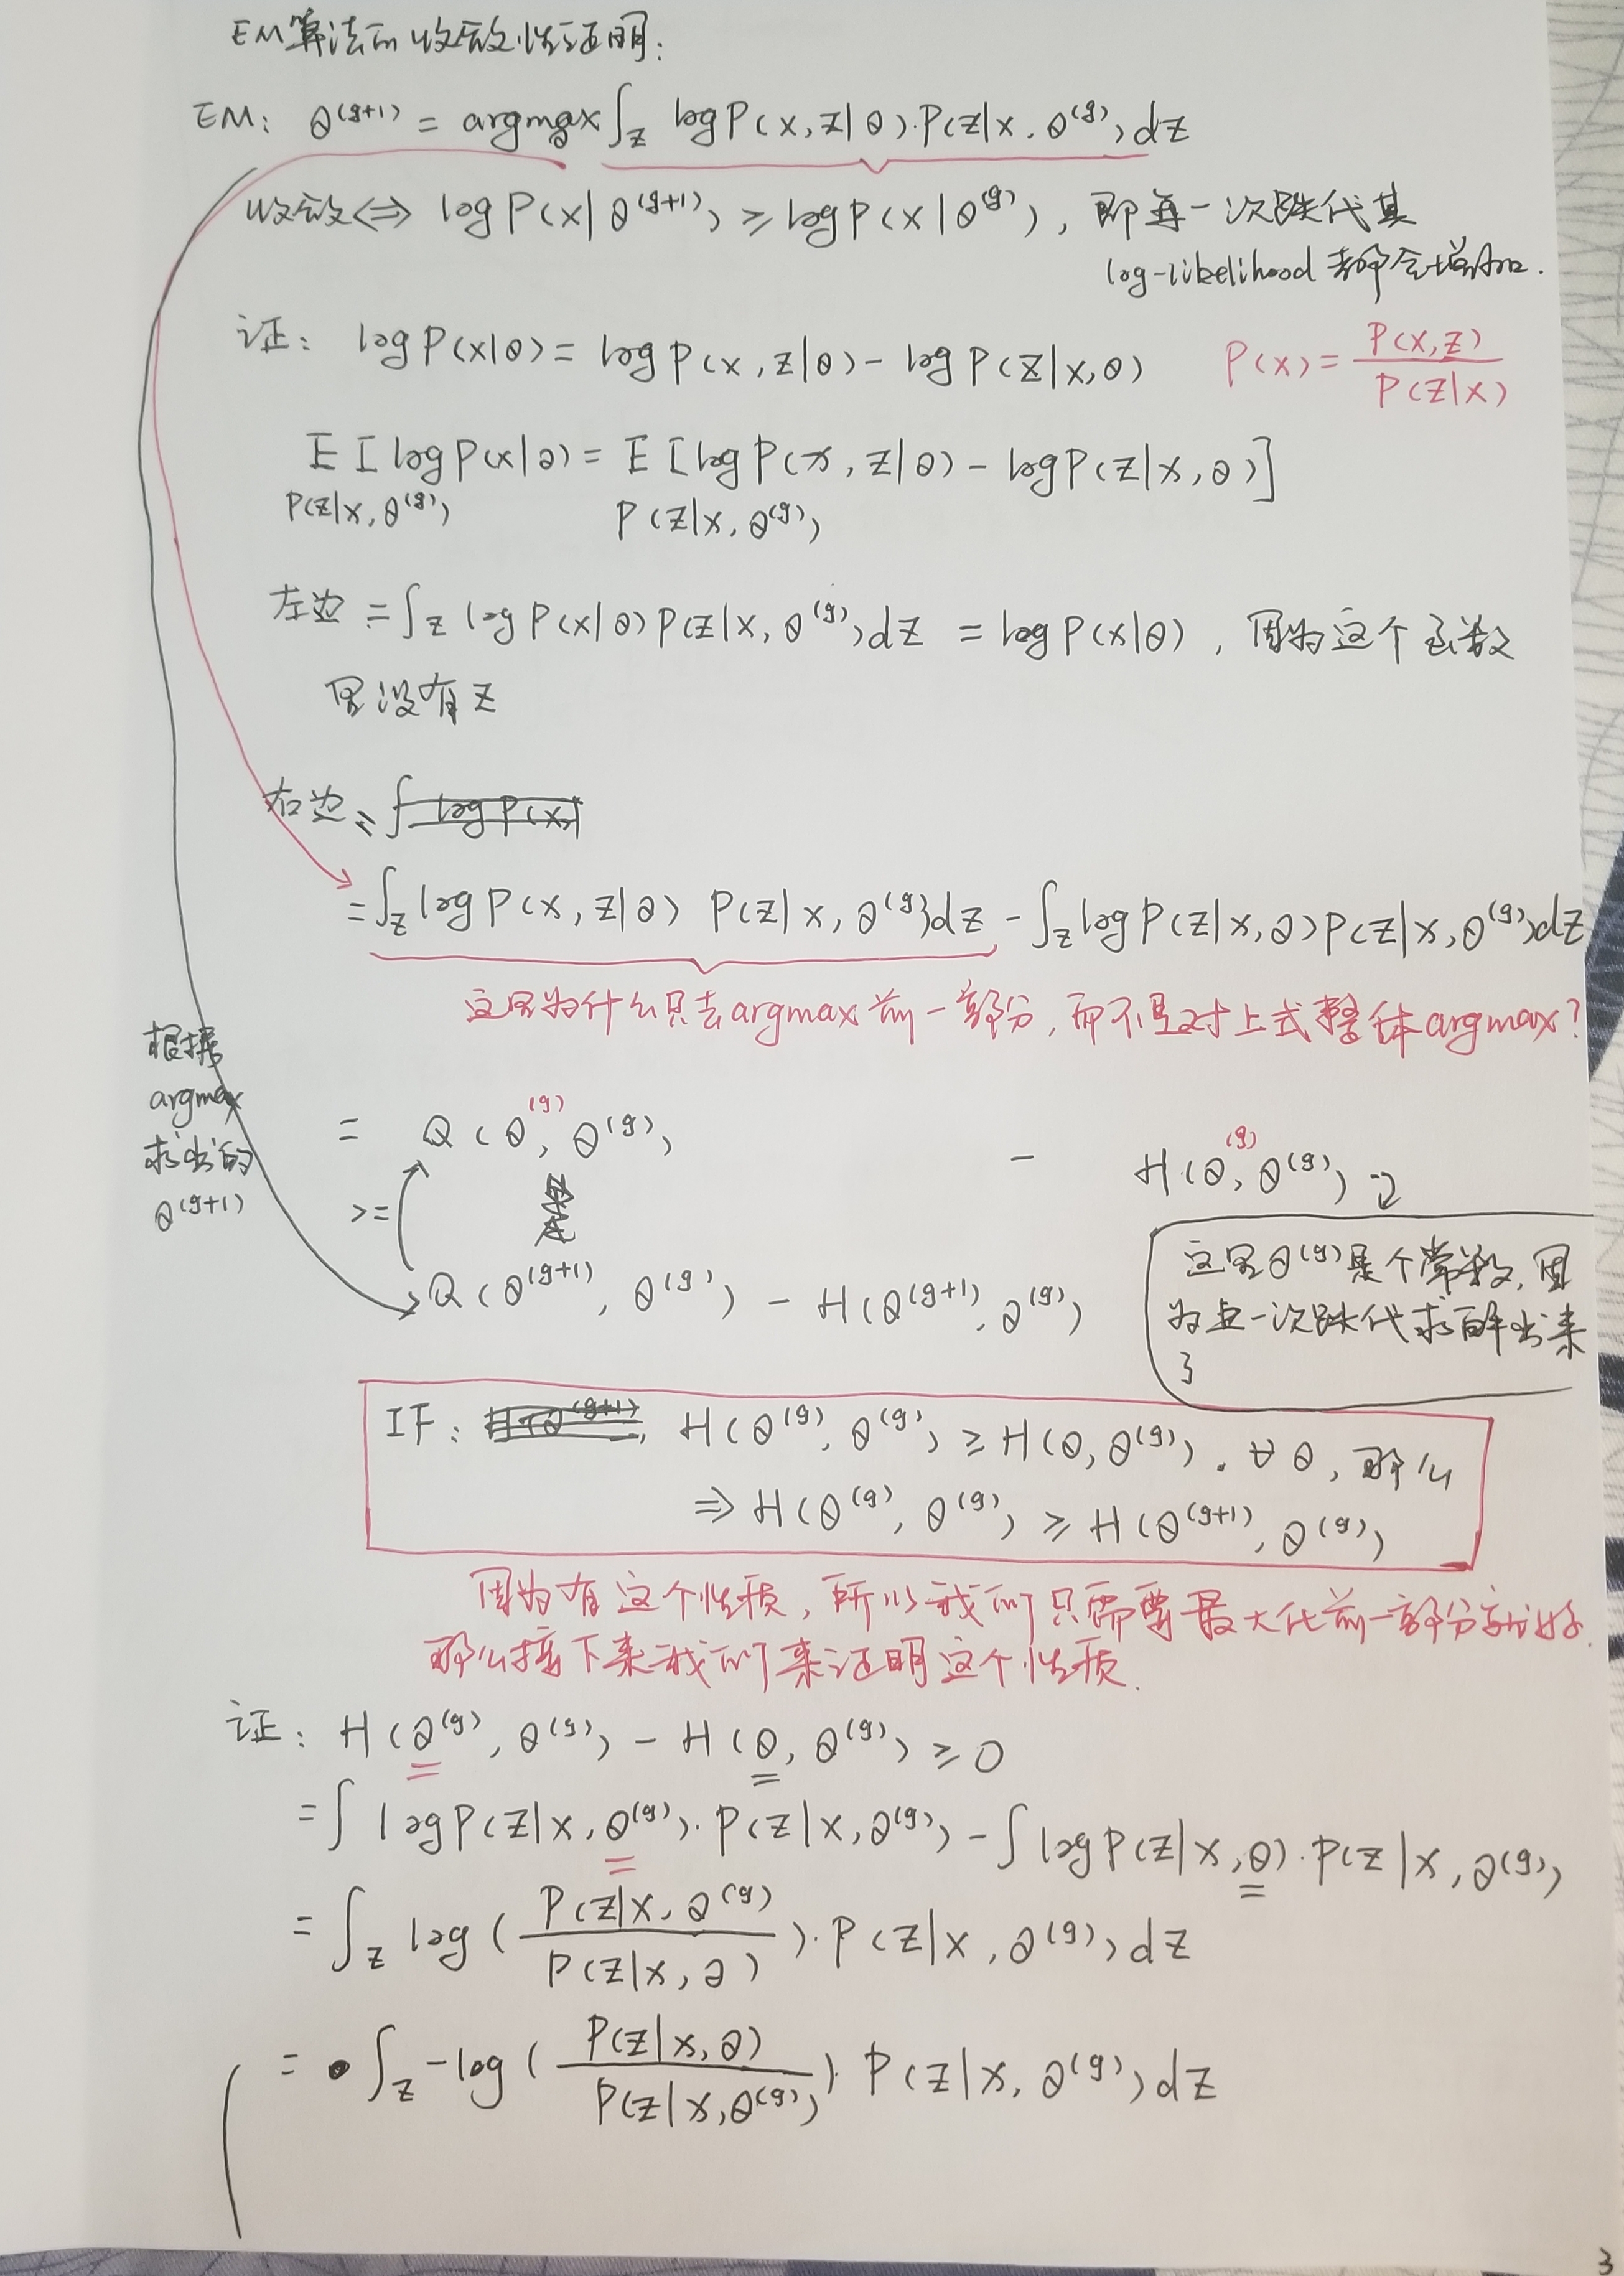 EM算法的收敛性证明:
EM: θ^(g+1) = argmax_θ ∫_z log P(x, z|θ)·P(z|x, θ^(g)) dz
收敛 ⟺ log P(x|θ^(g+1)) ≥ log P(x|θ^(g)), 即每一次跌代其
log-likelihood 都会增加.
证: log P(x|θ) = log P(x, z|θ) - log P(z|x, θ) P(x) = P(x,z) / P(z|x)
E[log P(x|θ) = E[log P(x, z|θ) - log P(z|x, θ)]
P(z|x, θ^(g)) P(z|x, θ^(g))
左边 = ∫_z log P(x|θ) P(z|x, θ^(g)) dz = log P(x|θ), 因为这个函数
里没有z
右边 =
= ∫_z log P(x, z|θ) P(z|x, θ^(g)) dz - ∫_z log P(z|x, θ) P(z|x, θ^(g)) dz
这里为什么只去argmax前一部分, 而不是对上式整体argmax?
根据
argmax
求出的
θ^(g+1)
= Q(θ^(g), θ^(g)) - H(θ^(g), θ^(g))
>=
Q(θ^(g+1), θ^(g)) - H(θ^(g+1), θ^(g))
这里θ^(g)是个常数, 因
为上一次跌代求解出来
了
IF: H(θ^(g), θ^(g)) ≥ H(θ, θ^(g)). ∀θ, 那么
⇒ H(θ^(g), θ^(g)) ≥ H(θ^(g+1), θ^(g))
因为有这个性质, 所以我们只需要最大化前一部分就好.
那么接下来我们来证明这个性质.
证: H(θ^(g), θ^(g)) - H(θ, θ^(g)) ≥ 0
= ∫ log P(z|x, θ^(g))·P(z|x, θ^(g)) - ∫ log P(z|x, θ)·P(z|x, θ^(g))
= ∫_z log ( P(z|x, θ^(g)) / P(z|x, θ) )·P(z|x, θ^(g)) dz
= ∫_z -log ( P(z|x, θ) / P(z|x, θ^(g)) )·P(z|x, θ^(g)) dz
3